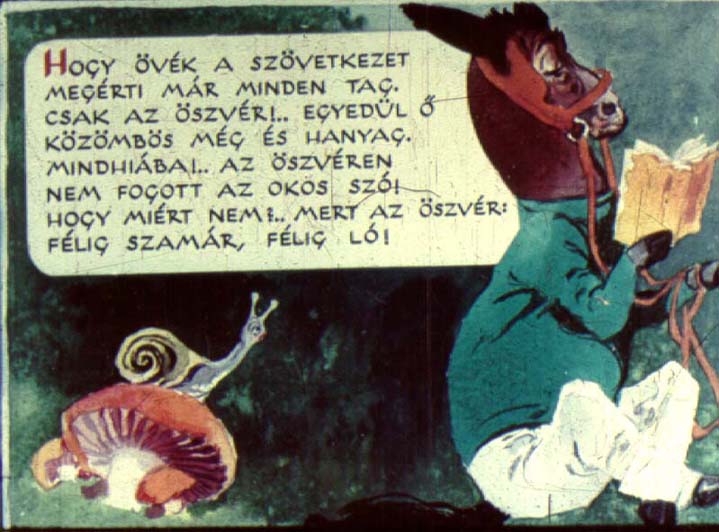 HOGY ÖVÉK A SZÖVETKEZET
MEGÉRTI MÁR MINDEN TAG.
CSAK AZ ÖSZVÉR!.. EGYEDÜL Ő
KÖZÖMBÖS MÉG ÉS HANYAG.
MINDHIÁBA!.. AZ ÖSZVÉREN
NEM FOGOTT AZ OKOS SZÓ!
HOGY MIÉRT NEM?.. MERT AZ ÖSZVÉR:
FÉLIG SZAMÁR, FÉLIG LÓ!